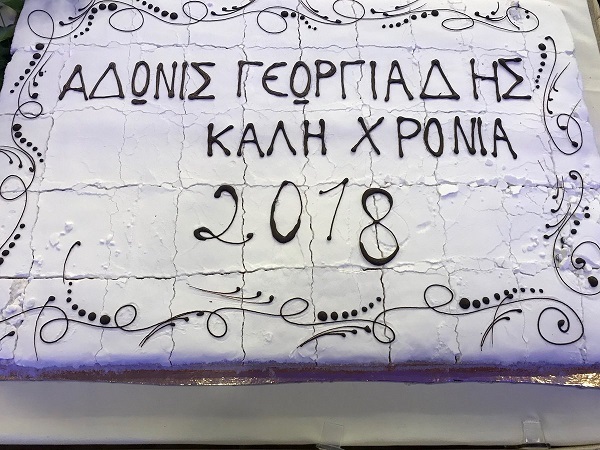 ΑΔΩΝΙΣ ΓΕΩΡΓΙΑΔΗΣ
ΚΑΛΗ ΧΡΟΝΙΑ
2018